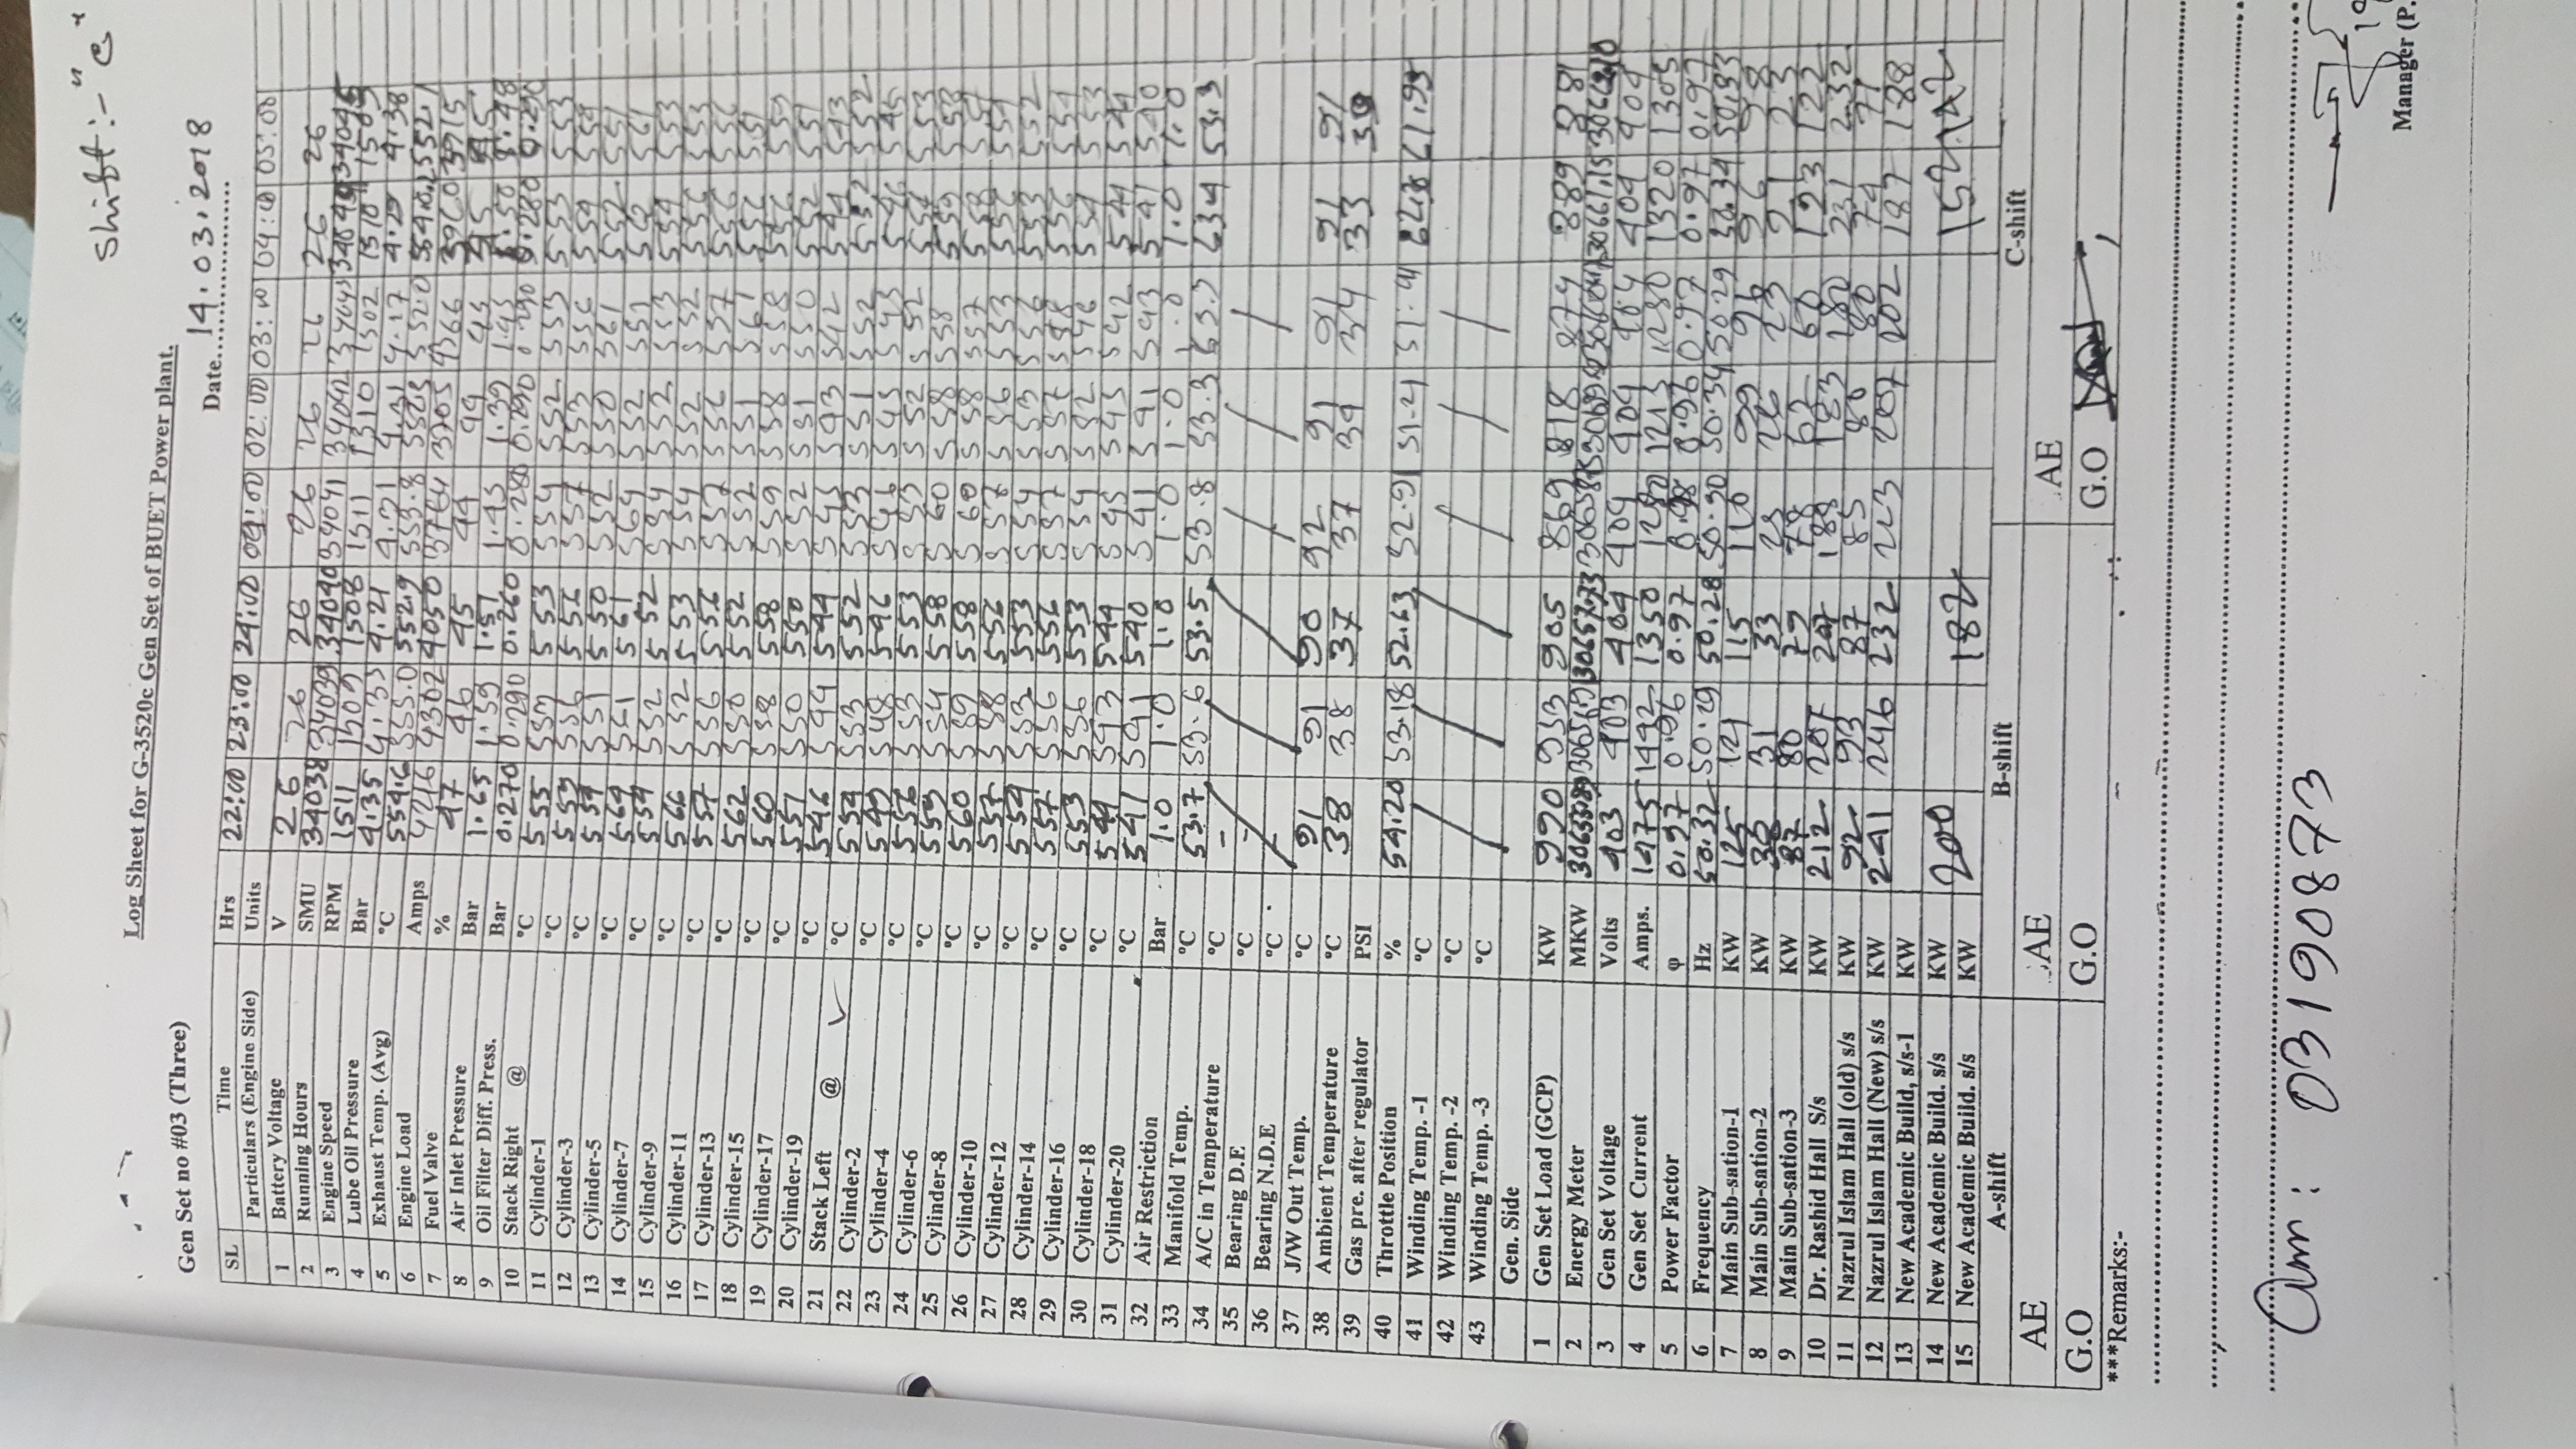 Shift:- "C"
Log Sheet for G-3520c Gen Set of BUET Power plant.
Gen Set no #03 (Three)
Date..... 14.03.2018
SL Time Hrs 22:00 23:00 24:00 02:00 03:00 04:00 05:00
Particulars (Engine Side) Units
1 Battery Voltage V 26 26 26 26 26 26 26 26
2 Running Hours SMU 34038 34039 34040 34041 34042 34043
3 Engine Speed RPM 1511 1509 1508 1511 1510 1502 1510
4 Lube Oil Pressure Bar 4.35 4.33 4.21 4.31 4.31 4.17 4.29 4.38
5 Exhaust Temp. (Avg) °C 554.6 555.0 552.9 553.8 552.0 552.1
6 Engine Load Amps 4216 4302 4050 3764 3705 4366 3960 3915
7 Fuel Valve % 47 46 45 44 44 45 45 45
8 Air Inlet Pressure Bar 1.65 1.59 1.57 1.45 1.39 1.45 1.50 1.48
9 Oil Filter Diff. Press. Bar 0.270 0.290 0.260 0.280 0.290 0.290 0.280 0.290
10 Stack Right @ °C 555 553 554 552 553 553 553
11 Cylinder-1 °C 556 556 557 553 556 554 554
12 Cylinder-3 °C 551 550 552 550 561 552 551
13 Cylinder-5 °C 564 561 561 564 552 551 562 561
14 Cylinder-7 °C 554 552 552 554 552 553 554 553
15 Cylinder-9 °C 566 552 553 554 552 552 556 553
16 Cylinder-11 °C 557 556 556 557 556 557 556 556
17 Cylinder-13 °C 562 550 552 552 551 561 552 551
18 Cylinder-15 °C 560 558 558 559 558 558 556 559
19 Cylinder-17 °C 551 550 550 552 551 550 552 551
20 Cylinder-19 °C 546 544 544 545 543 542 544 543
21 Stack Left @ ✓ °C 554 553 552 553 551 552 552 552
22 Cylinder-2 °C 549 548 546 546 545 545 546 545
23 Cylinder-4 °C 556 553 553 553 552 552 554 553
24 Cylinder-6 °C 559 554 558 560 558 558 559 558
25 Cylinder-8 °C 560 559 558 560 558 557 558 557
26 Cylinder-10 °C 557 558 556 557 556 553 556 554
27 Cylinder-12 °C 554 553 553 554 553 556 553 552
28 Cylinder-14 °C 557 556 556 557 557 558 556 554
29 Cylinder-16 °C 553 556 553 554 552 546 554 553
30 Cylinder-18 °C 544 543 544 545 545 542 544 544
31 Cylinder-20 °C 541 541 540 541 541 543 541 540
32 Air Restriction Bar 1.0 1.0 1.0 1.0 1.0 1.0 1.0 1.0
33 Manifold Temp. °C 53.7 53.6 53.5 53.8 53.3 53.3
34 A/C in Temperature °C -
35 Bearing D.E °C -
36 Bearing N.D.E °C -
37 J/W Out Temp. °C 91 91 90 92 91 91 91 91
38 Ambient Temperature °C 38 38 37 37 34 34 33
39 Gas pre. after regulator PSI
40 Throttle Position % 54.20 53.18 52.63 52.91 51.21
41 Winding Temp. -1 °C
42 Winding Temp. -2 °C
43 Winding Temp. -3 °C
Gen. Side
1 Gen Set Load (GCP) KW 990 953 905 869 818 874 889 881
2 Energy Meter MKW 30655.89 30657.73 30661.15
3 Gen Set Voltage Volts 403 403 404 404 404 404 404 404
4 Gen Set Current Amps. 1475 1442 1350 1280 1215 1280 1320 1305
5 Power Factor φ 0.97 0.96 0.97 0.98 0.96 0.97 0.97 0.97
6 Frequency Hz 50.32 50.29 50.28 50.30 50.34 50.29 50.34 50.33
7 Main Sub-sation-1 KW 125 121 115 110 99 96 96 98
8 Main Sub-sation-2 KW 31 33 25 26 23 21 23
9 Main Sub-sation-3 KW 87 80 79 78 62 60 123 122
10 Dr. Rashid Hall S/s KW 212 207 207 188 183 180 231 232
11 Nazrul Islam Hall (old) s/s KW 92 93 87 85 80 80 74 71
12 Nazrul Islam Hall (New) s/s KW 241 246 232 223 207 202 187 188
13 New Academic Build, s/s-1 KW
14 New Academic Build. s/s KW 200 152 142
15 New Academic Build. s/s KW 182
A-shift B-shift C-shift
AE AE AE
G.O G.O G.O
***Remarks:-
03190873
Manager (P.